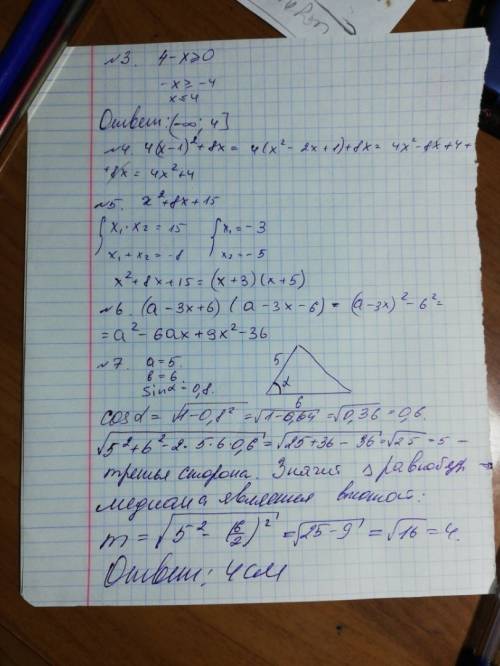 №3. 4-x≥0
-x≥-4
x≤4
Ответ: (-∞; 4]
№4. 4(x-1)²+8x = 4(x²-2x+1)+8x = 4x²-8x+4+
+8x = 4x²+4
№5. x²+8x+15
x₁·x₂=15 x₁=-3
x₁+x₂=-8 x₂=-5
x²+8x+15=(x+3)(x+5)
№6. (a-3x+6)(a-3x-6) = (a-3x)²-6²=
=a²-6ax+9x²-36
№7. a=5.
b=6
sinα=0,8.
5
α
6
cosα=√1-0,8²=√1-0,64=√0,36=0,6.
√5²+6²-2·5·6·0,6=√25+36-36=√25=5-
третья сторона. Значит Δ равнобедр -
медиана является высотой:
m=√5²-(6/2)²=√25-9=√16=4.
Ответ: 4см